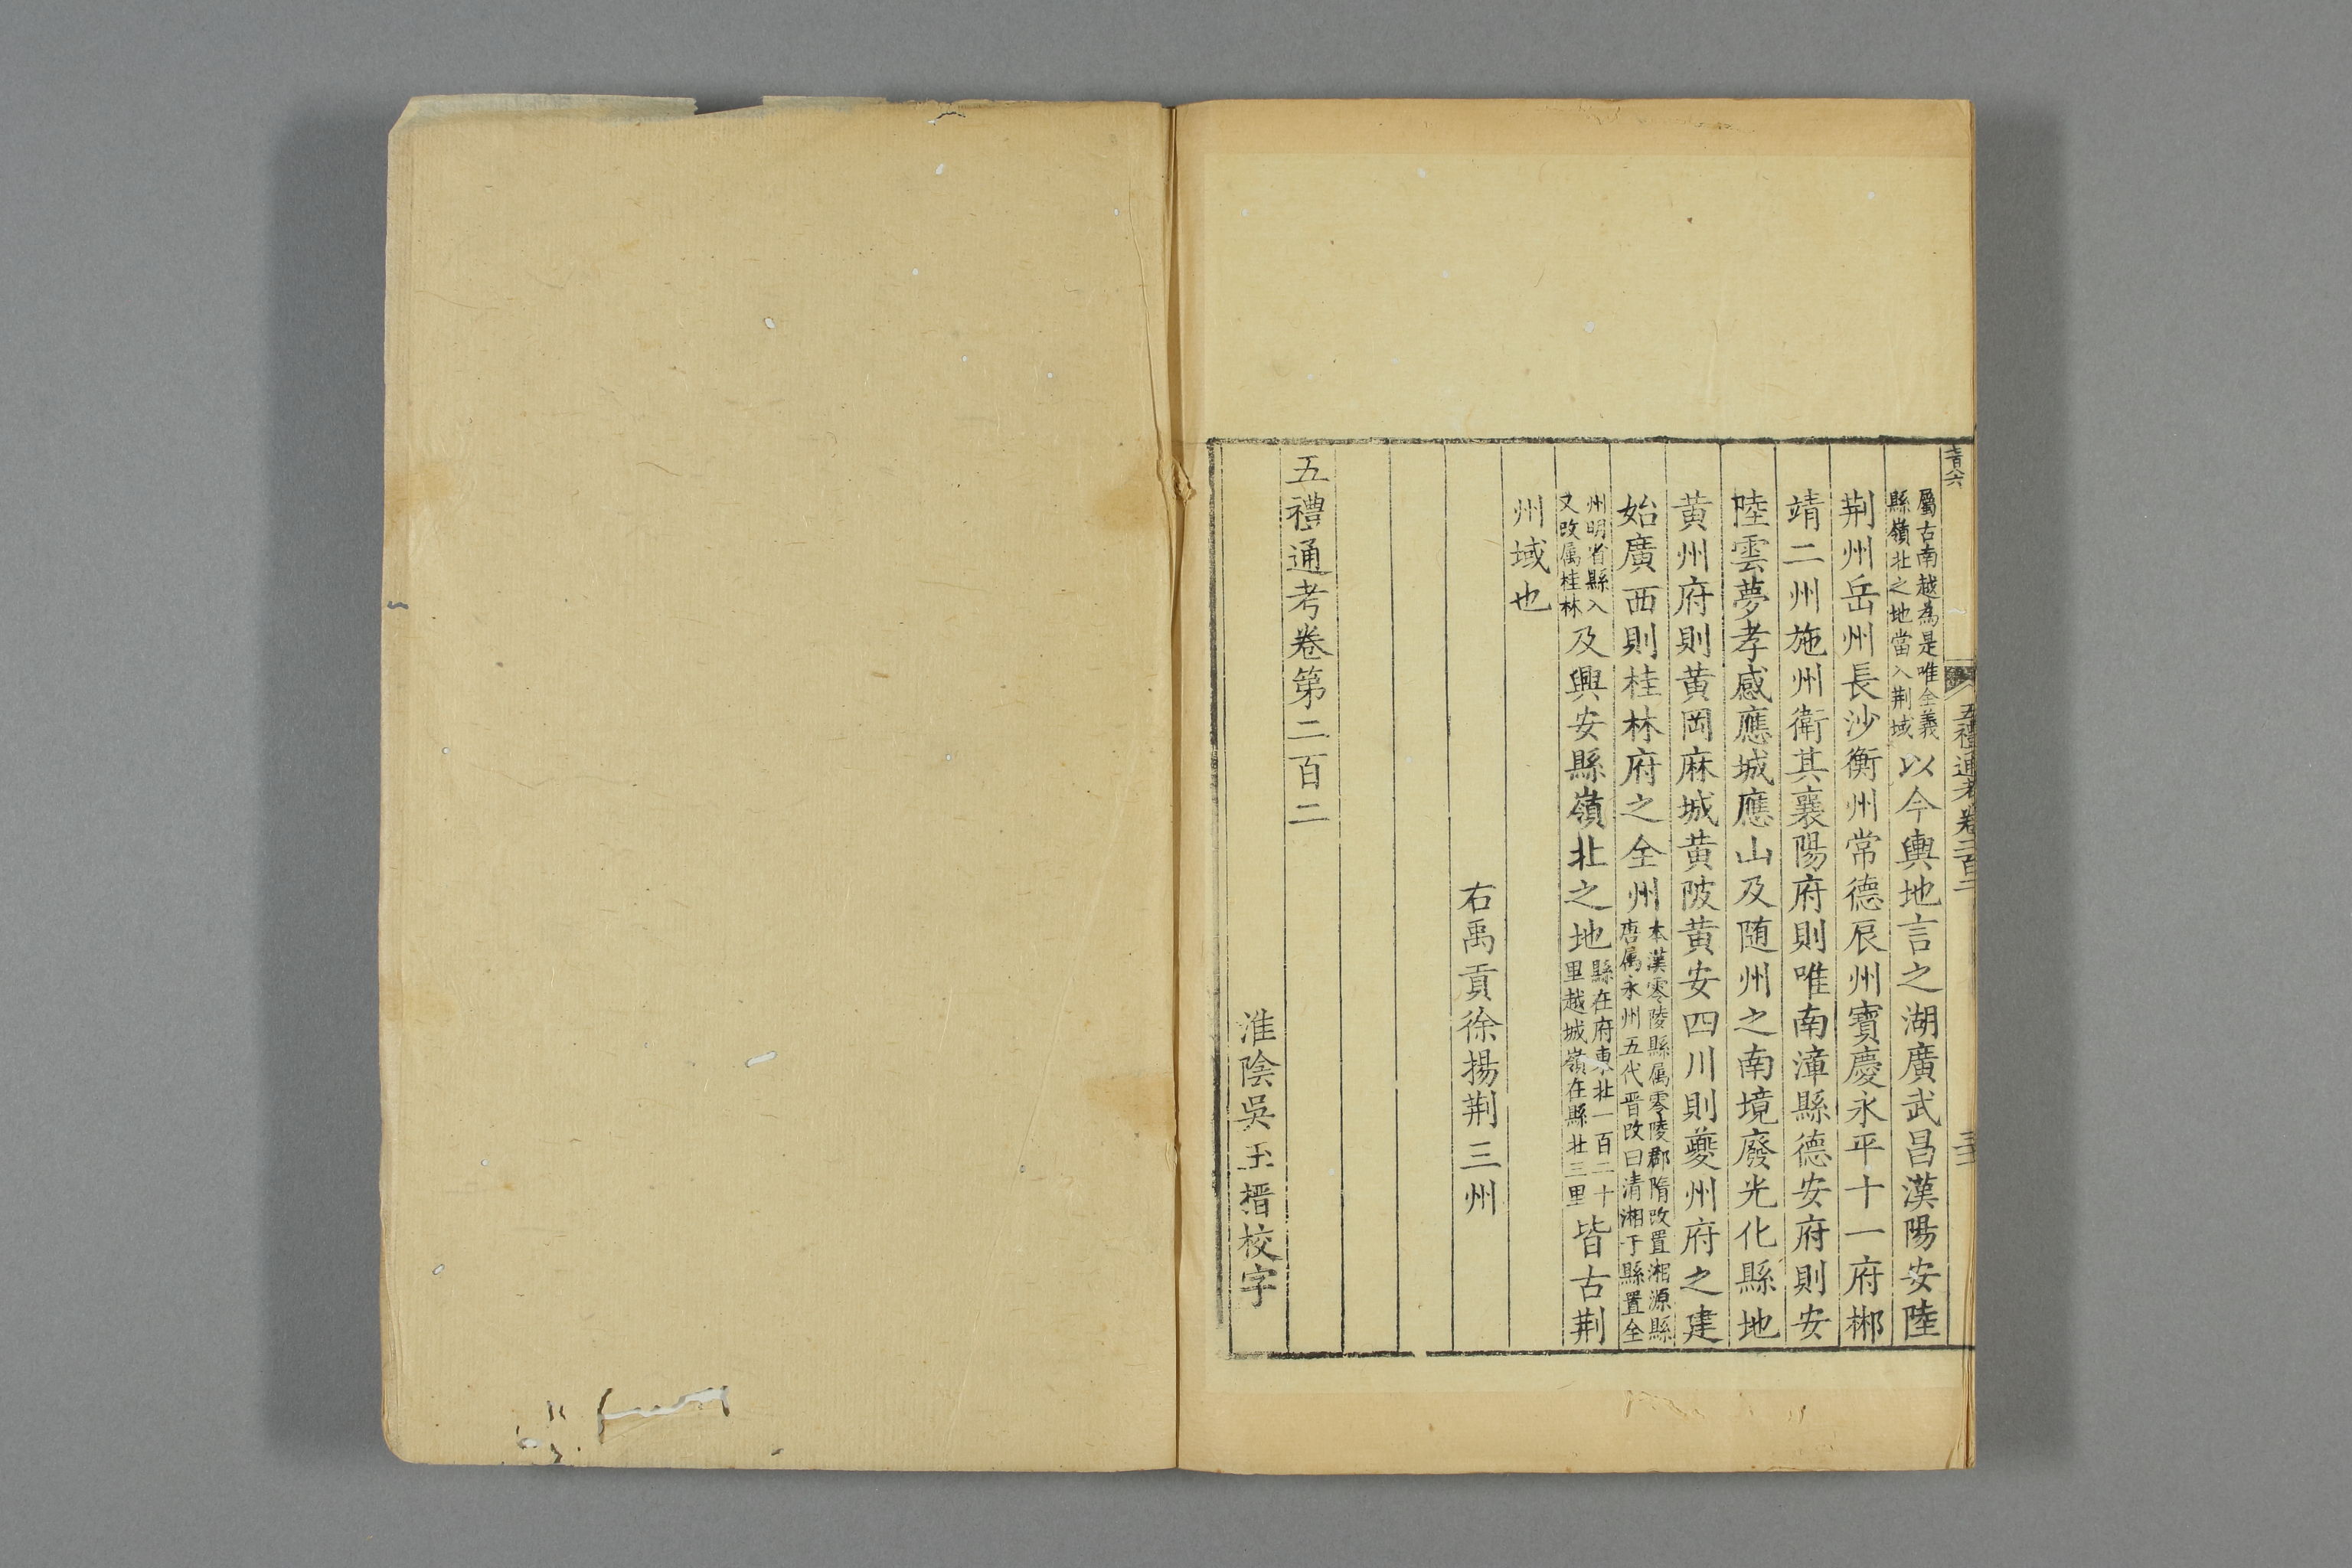 五禮通考卷二百二
屬古南越為是唯全義
縣嶺北之地當入荆域
以今輿地言之湖廣武昌漢陽安陸
荆州岳州長沙衡州常德辰州寶慶永平十一府郴
靖二州施州衛其襄陽府則唯南漳縣德安府則安
陸雲夢孝感應城應山及随州之南境廢光化縣地
黄州府則黄岡麻城黄陂黄安四川則夔州府之建
始廣西則桂林府之全州
本漢零陵縣属零陵郡隋改置湘源縣
唐属永州五代晋改曰清湘于縣置全
州明省縣入
又改属桂林
及興安縣嶺北之地
縣在府東北一百二十
里越城嶺在縣北三里
皆古荆
州域也
右禹貢徐揚荆三州
五禮通考卷第二百二
淮陰吳玉搢校字